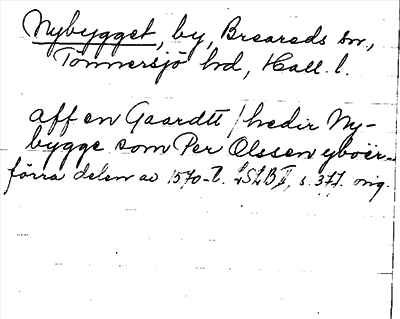 Nybygget, by, Breareds sn,
Tönnersjö hd, Hall. l.
aff en Gaardtt / hedir Ny-
bygge som Per Olssen yboer
förra delen av 1570-t. LSLB I, s. 377. orig.